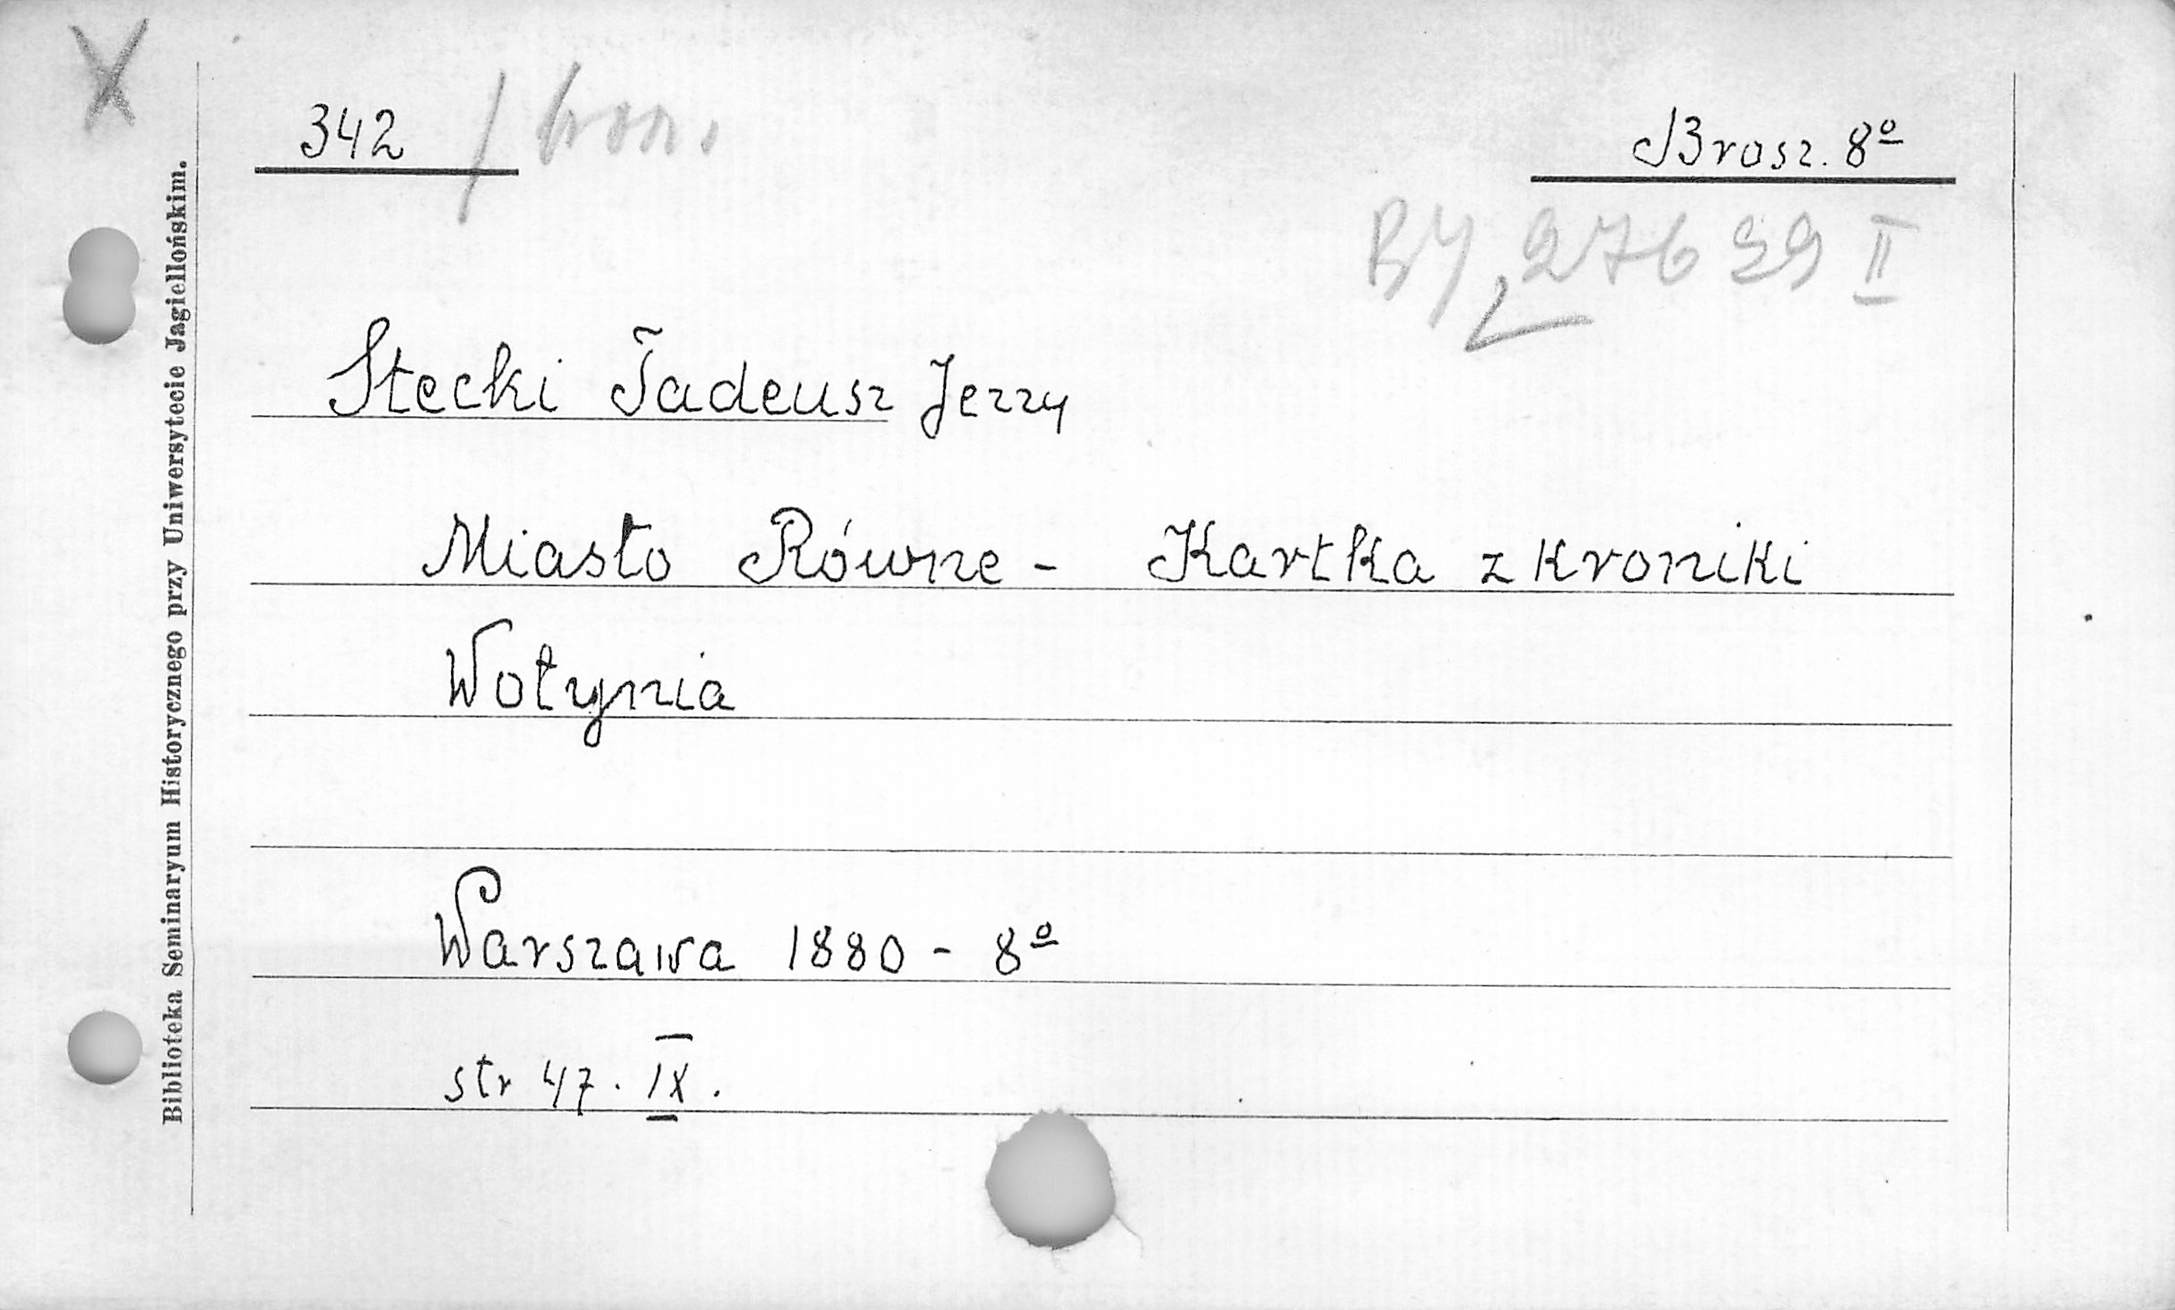 X
342
Brosz. 8º
BJ 27639 II
Stecki Tadeusz Jerzy
Miasto Równe - Kartka z kroniki
Wołynia
Warszawa 1880 - 8º
str 47. IX.
Biblioteka Seminaryum Historycznego przy Uniwersytecie Jagiellońskim.